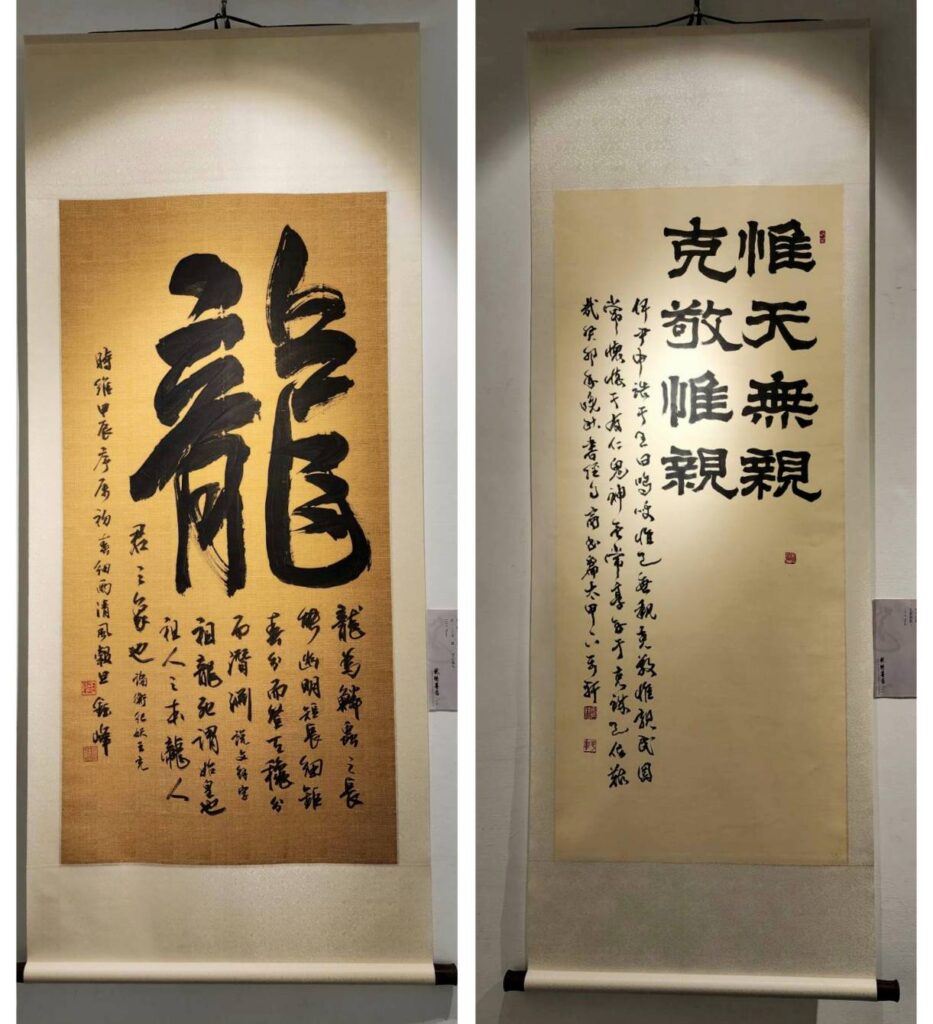 龍
龍爲鱗蟲之長
能幽明短長細鉅
春分而登天穐分
而潛淵說文解字
祖龍死謂始皇也
祖人之本龍人
君之象也論衡紀妖王充
時維甲辰序屬初春細雨清風穀旦
惟天無親
克敬惟親
伊尹申誥于王曰嗚呼惟天無親克敬惟親民罔
常懷懷于有仁鬼神無常享享于克誠天位艱
哉癸卯年晚秋書經句商書篇太甲下